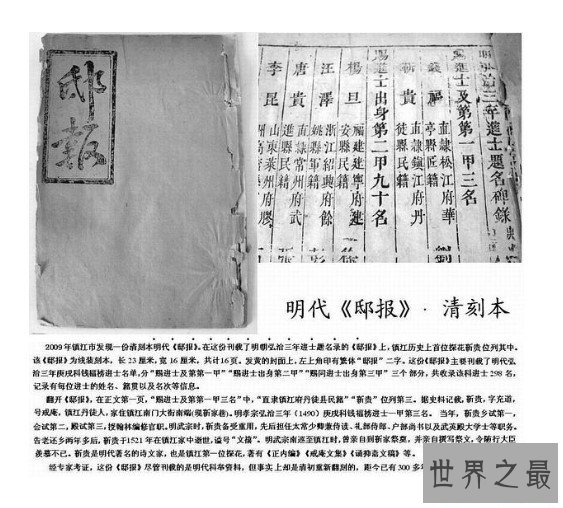 邸報
弘治三年進士題名碑錄
賜進士及第第一甲三名
錢福 直隸松江府華
亭縣匠籍
靳貴 直隸鎮江府丹
徒縣民籍
賜進士出身第二甲九十名
楊旦 福建建寧府建
安縣民籍
汪澤 浙江紹興府餘
姚縣軍籍
唐貴 直隸常州府武
進縣民籍
李昆 山東萊州府膠
明代《邸报》·清刻本
2009年镇江市发现一份清刻本明代《邸报》。在这份刊载了明朝弘治三年进士题名录的《邸报》上,镇江历史上首位探花靳贵位列其中。
该《邸报》为线装刻本,长 23 厘米,宽 16 厘米,共计16页。发黄的封面上,左上角印有繁体“邸报”二字。这份《邸报》主要刊载了明代弘
治三年庚戌科钱福榜进士名单,分“赐进士及第第一甲”“赐进士出身第二甲”“赐同进士出身第三甲”三个部分,共收录该科进士 298 名,
记录有每位进士的姓名、籍贯以及名次等信息。
翻开《邸报》,在正文第一页,“赐进士及第第一甲三名”中,“直隶镇江府丹徒县民籍”“靳贵”位列第三。据史料记载,靳贵,字充道,
号戒庵,镇江丹徒人,家住镇江南门大街南端(现靳家巷)。明孝宗弘治三年(1490)庚戌科钱福榜进士一甲第三名。 当年,靳贵乡试第一,
会试第二,殿试第三,授翰林编修官职。明武宗时,靳贵备受重用,先后担任太常少卿兼侍读、礼部侍郎、户部尚书以及武英殿大学士等职务。
告老还乡两年多后,靳贵于1521 年在镇江家中逝世,谥号“文僖”。明武宗南巡至镇江时,曾亲自到靳家祭奠,并亲自撰写祭文,令随行大臣
羡慕不已。靳贵是明代著名的诗文家,也是镇江第一位探花,著有《正内编》《戒庵文集》《诵抑斋文稿》等。
经专家考证,这份《邸报》尽管刊载的是明代科举资料,但事实上却是清初重新翻刻的,距今已有 300 多
世界之最